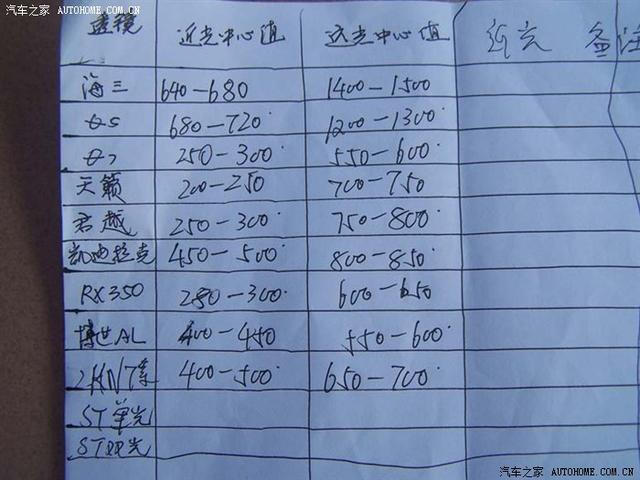 汽车之家 AUTOHOME.COM.CN
透镜 近光中心值 远光中心值 备注
海三 640-680 1400-1500
Q5 680-720 1200-1300
Q7 250-300 550-600
天籁 200-250 700-750
君越 250-300 750-800
凯迪拉克 450-500 800-850
RX350 250-300 600-650
博世AL 400-450 550-600
400-500 650-700
ST单光
ST双光
汽车之家 AUTOHOME.COM.CN